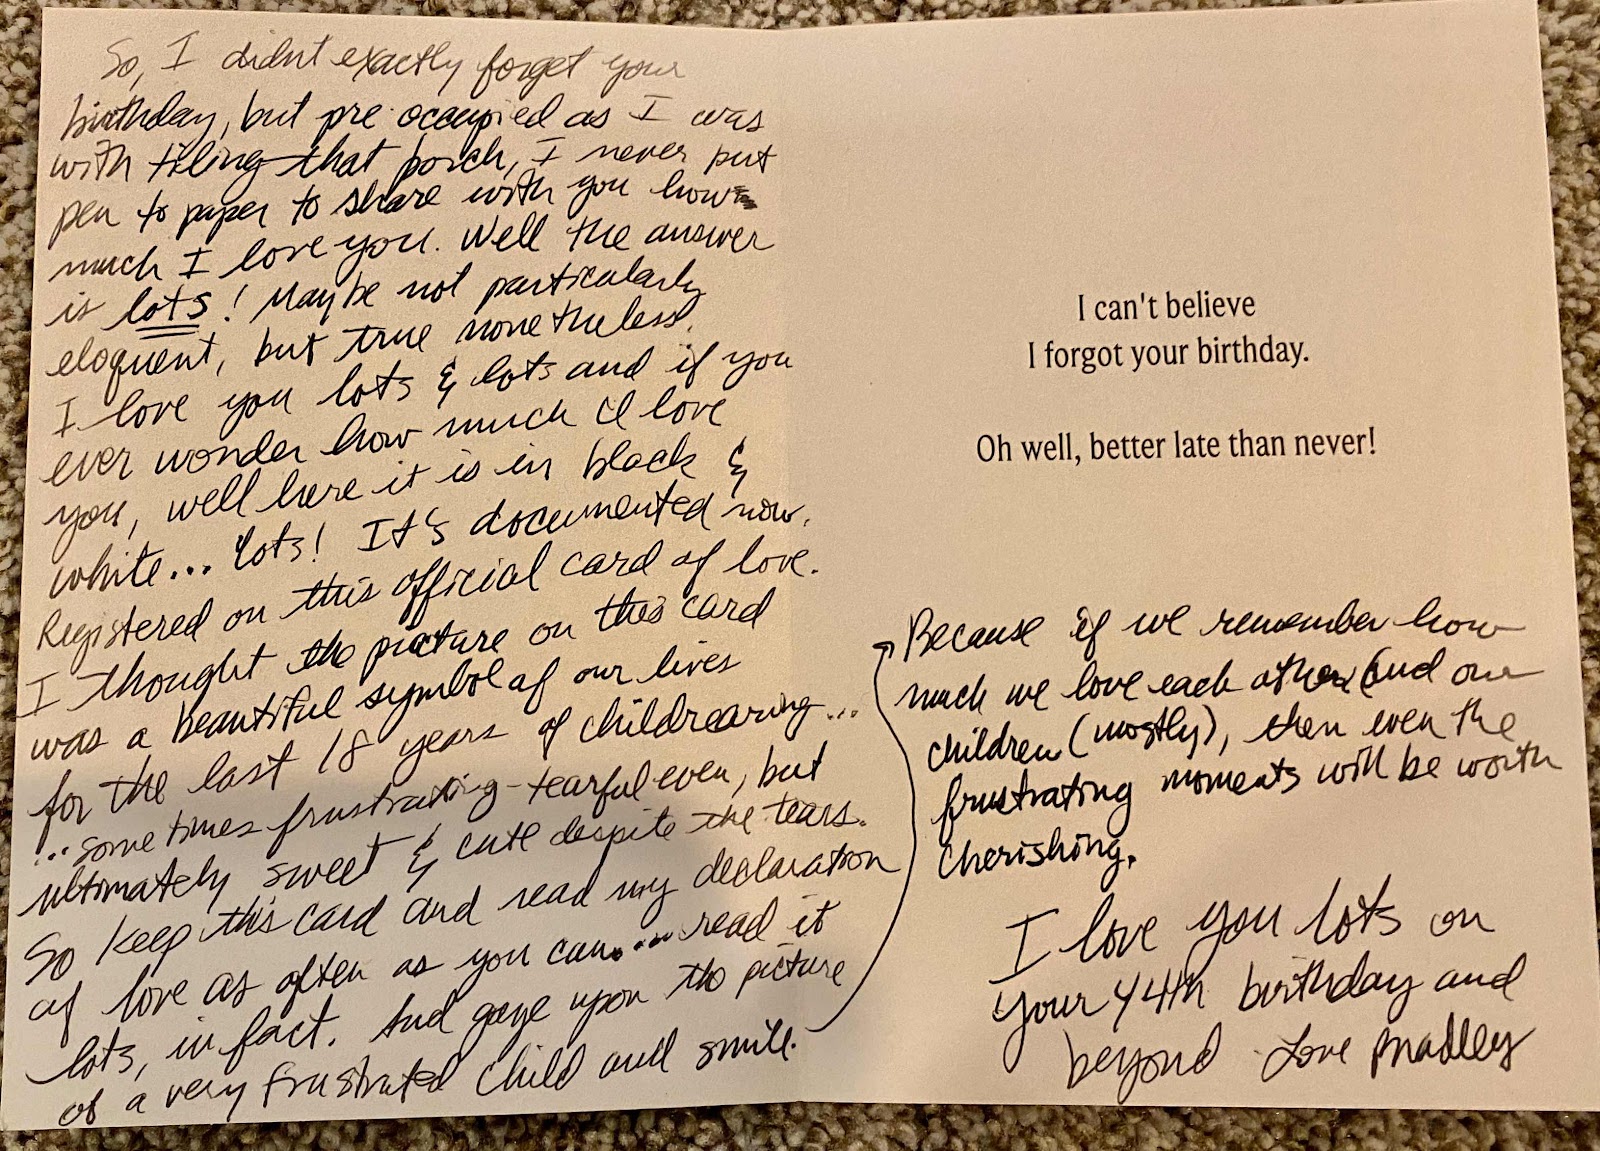 So, I didn't exactly forget your
birthday, but pre occupied as I was
with tiling that porch, I never put
pen to paper to share with you how
much I love you. Well the answer
is lots! Maybe not particularly
eloquent, but true nonetheless.
I love you lots & lots and if you
ever wonder how much I love
you, well here it is in black &
white... lots! It's documented now.
Registered on this official card of love.
I thought the picture on this card
was a beautiful symbol of our lives
for the last 18 years of childrearing...
...sometimes frustrating - tearful even, but
ultimately sweet & cute despite the tears.
So keep this card and read my declaration
of love as often as you can.... read it
lots, in fact. And gaze upon the picture
of a very frustrated child and smile.
I can't believe
I forgot your birthday.
Oh well, better late than never!
Because if we remember how
much we love each other (and our
children (mostly), then even the
frustrating moments will be worth
cherishing.
I love you lots on
your 44th birthday and
beyond Love Bradley